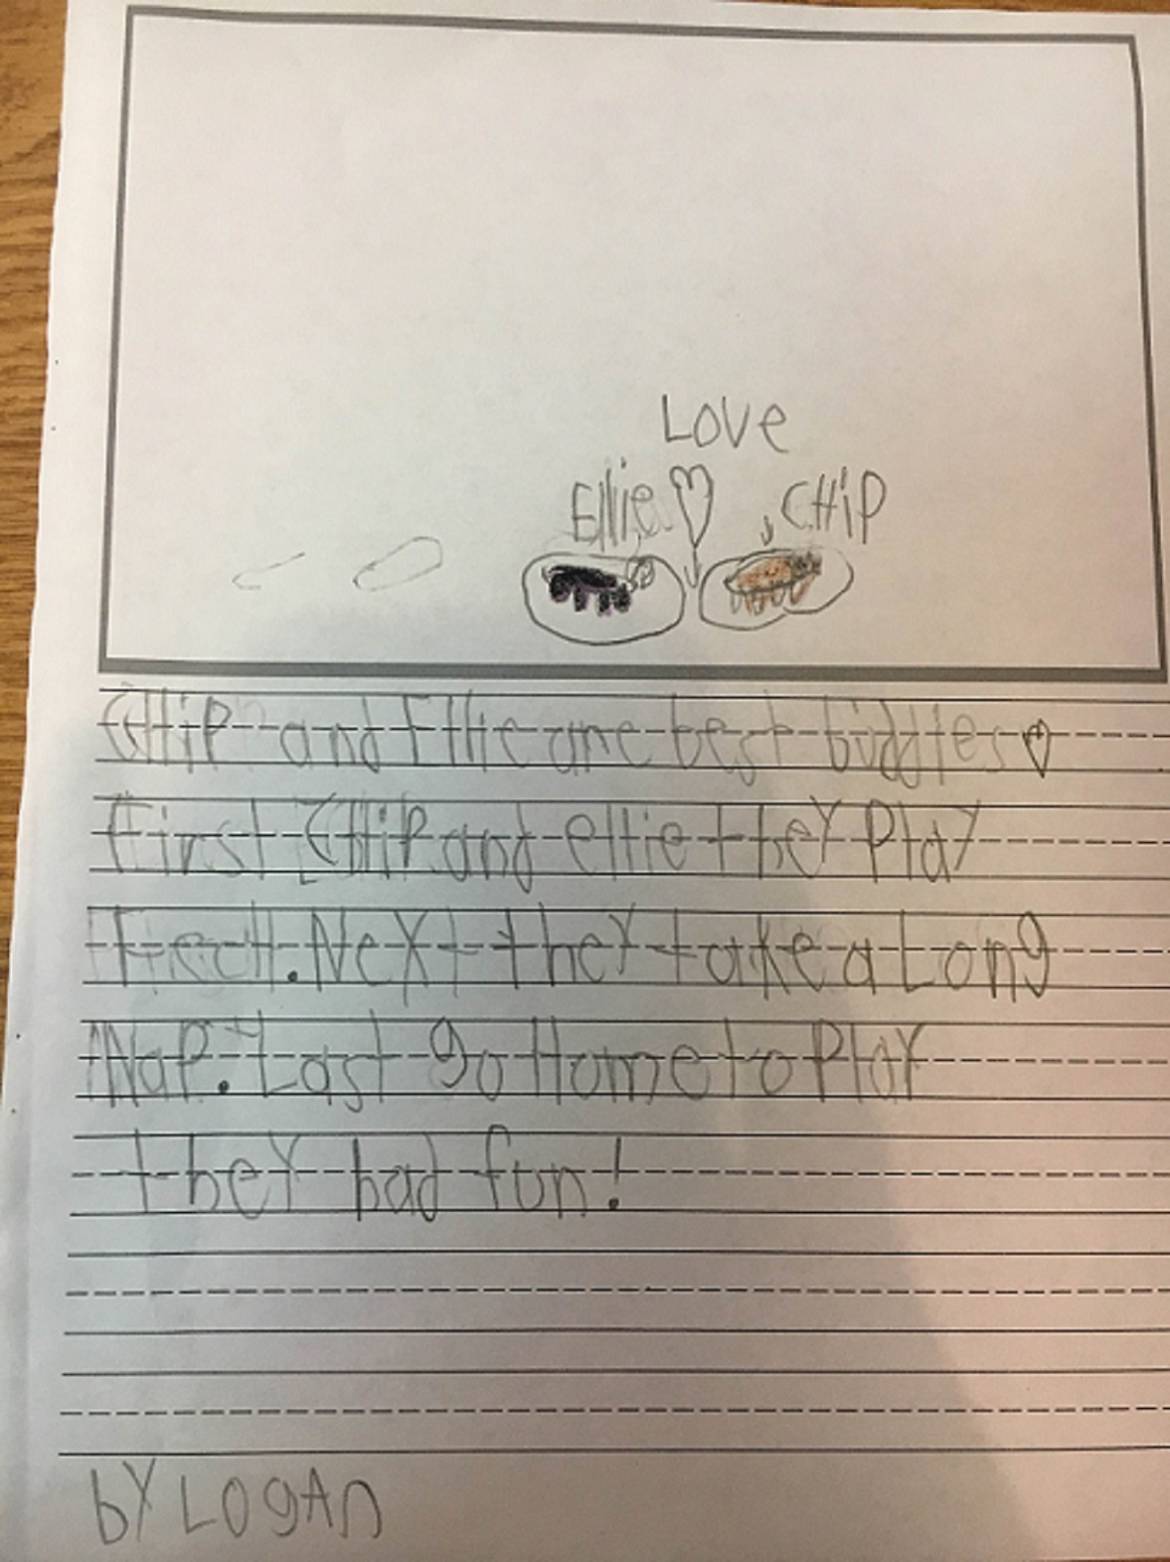 Love
Ellie ♡ CHiP
CHiP and Ellie are best buddies ♡
First CHiP and ellie theY PlaY
. NeXt theY take a Long
NaP. Last go Home to PlaY
theY had fun!
bY LOgAn